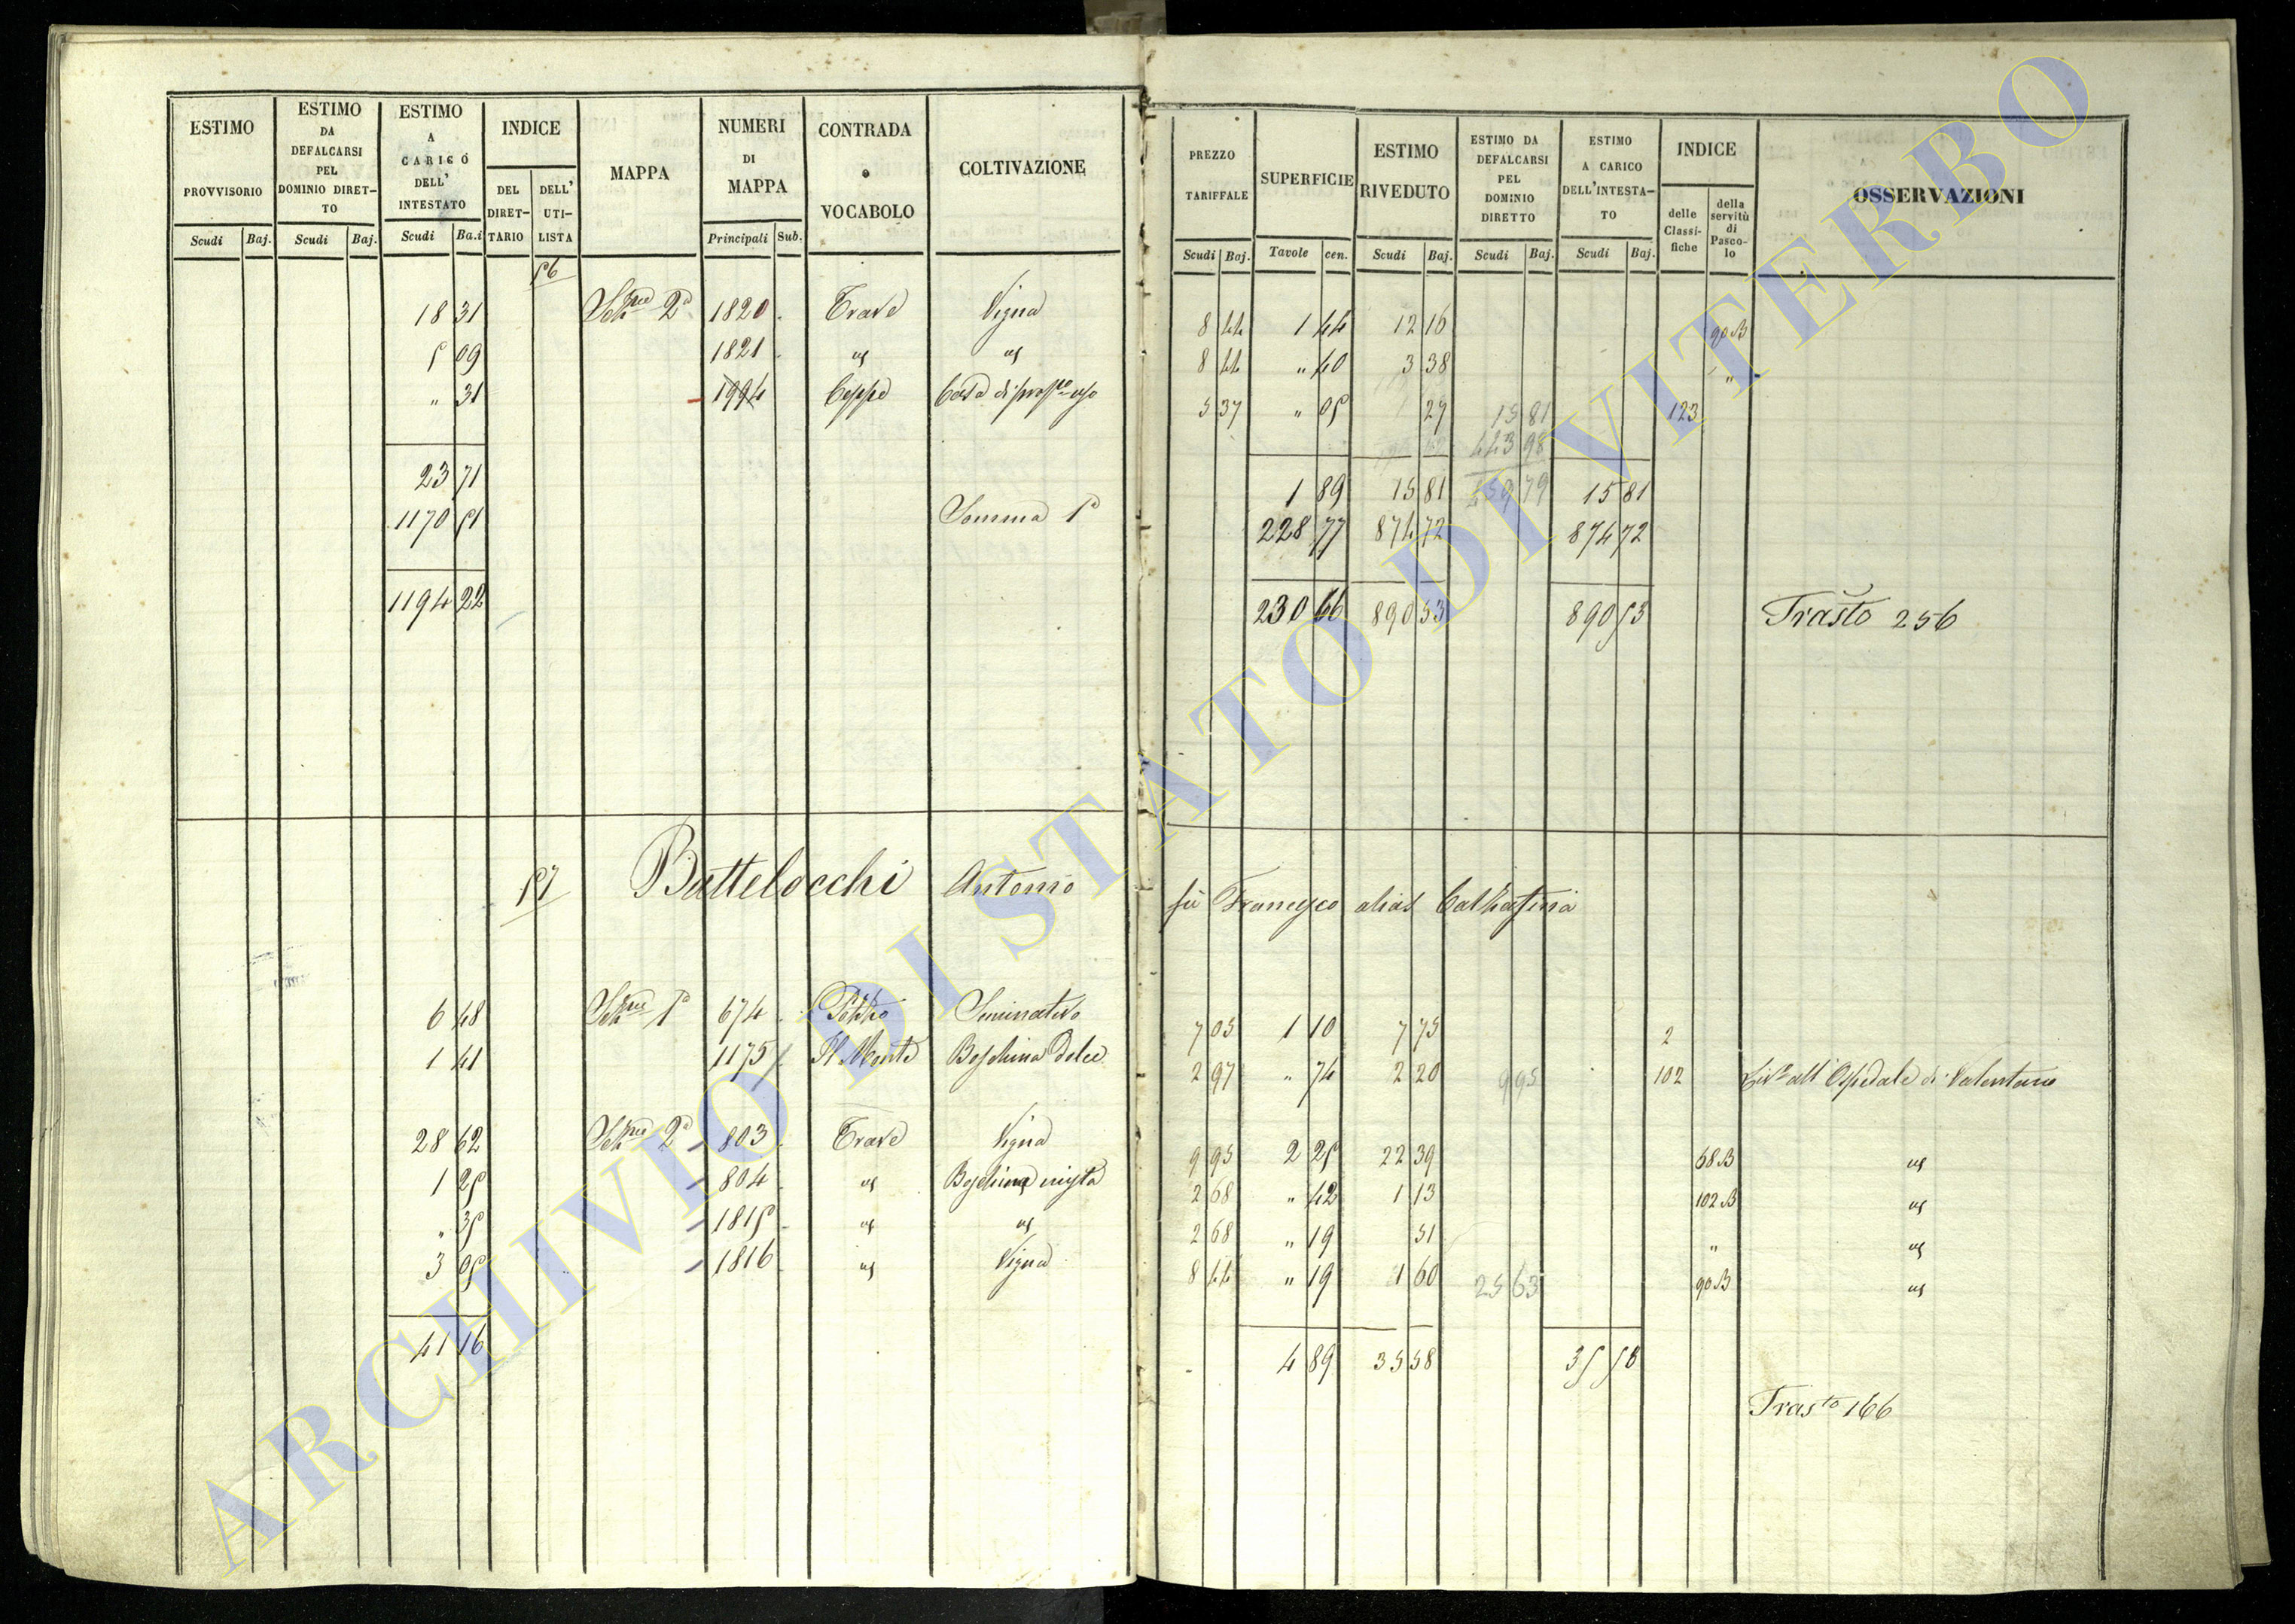 ESTIMO PROVVISORIO Scudi Baj. ESTIMO DA DEFALCARSI PEL DOMINIO DIRET-TO Scudi Baj. ESTIMO A CARICO DELL' INTESTATO Scudi Ba.i INDICE DEL DIRET-TARIO DELL' UTI-LISTA MAPPA NUMERI DI MAPPA Principali Sub. CONTRADA o VOCABOLO COLTIVAZIONE
PREZZO TARIFFALE Scudi Baj. SUPERFICIE Tavole cen. ESTIMO RIVEDUTO Scudi Baj. ESTIMO DA DEFALCARSI PEL DOMINIO DIRETTO Scudi Baj. ESTIMO A CARICO DELL'INTESTA-TO Scudi Baj. INDICE delle Classi-fiche della servitù di Pasco-lo OSSERVAZIONI
56
18 31 2ª 1820 Trave Vigna 8 44 1 44 12 16 90 B
5 09 1821 " " 8 44 " 40 3 38 "
" 31 1994 Ceppe Casa di uso 5 37 " 05 27 15 81 123
443 98
23 71 1 89 15 81 459 79 15 81
1170 51 Somma 1ª 228 77 874 72 874 72
1194 22 230 66 890 53 890 53 Trasto 256
57 Buttelocchi Antonio fù Francesco alias
6 48 1ª 674 Poggio Seminativo 7 05 1 10 7 75 2
1 41 1175 Il Monte Boschina dolce 2 97 " 74 2 20 9 95 102 all' Ospedale di Valentano
28 62 2ª 803 Trave Vigna 9 95 2 25 22 39 68 B "
1 25 804 " Boschina mista 2 68 " 42 1 13 102 B "
" 35 1815 " " 2 68 " 19 51 " "
3 05 1816 " Vigna 8 44 " 19 1 60 25 63 90 B "
41 16 4 89 35 58 35 58
Trasto 166
ARCHIVIO DI STATO DI VITERBO